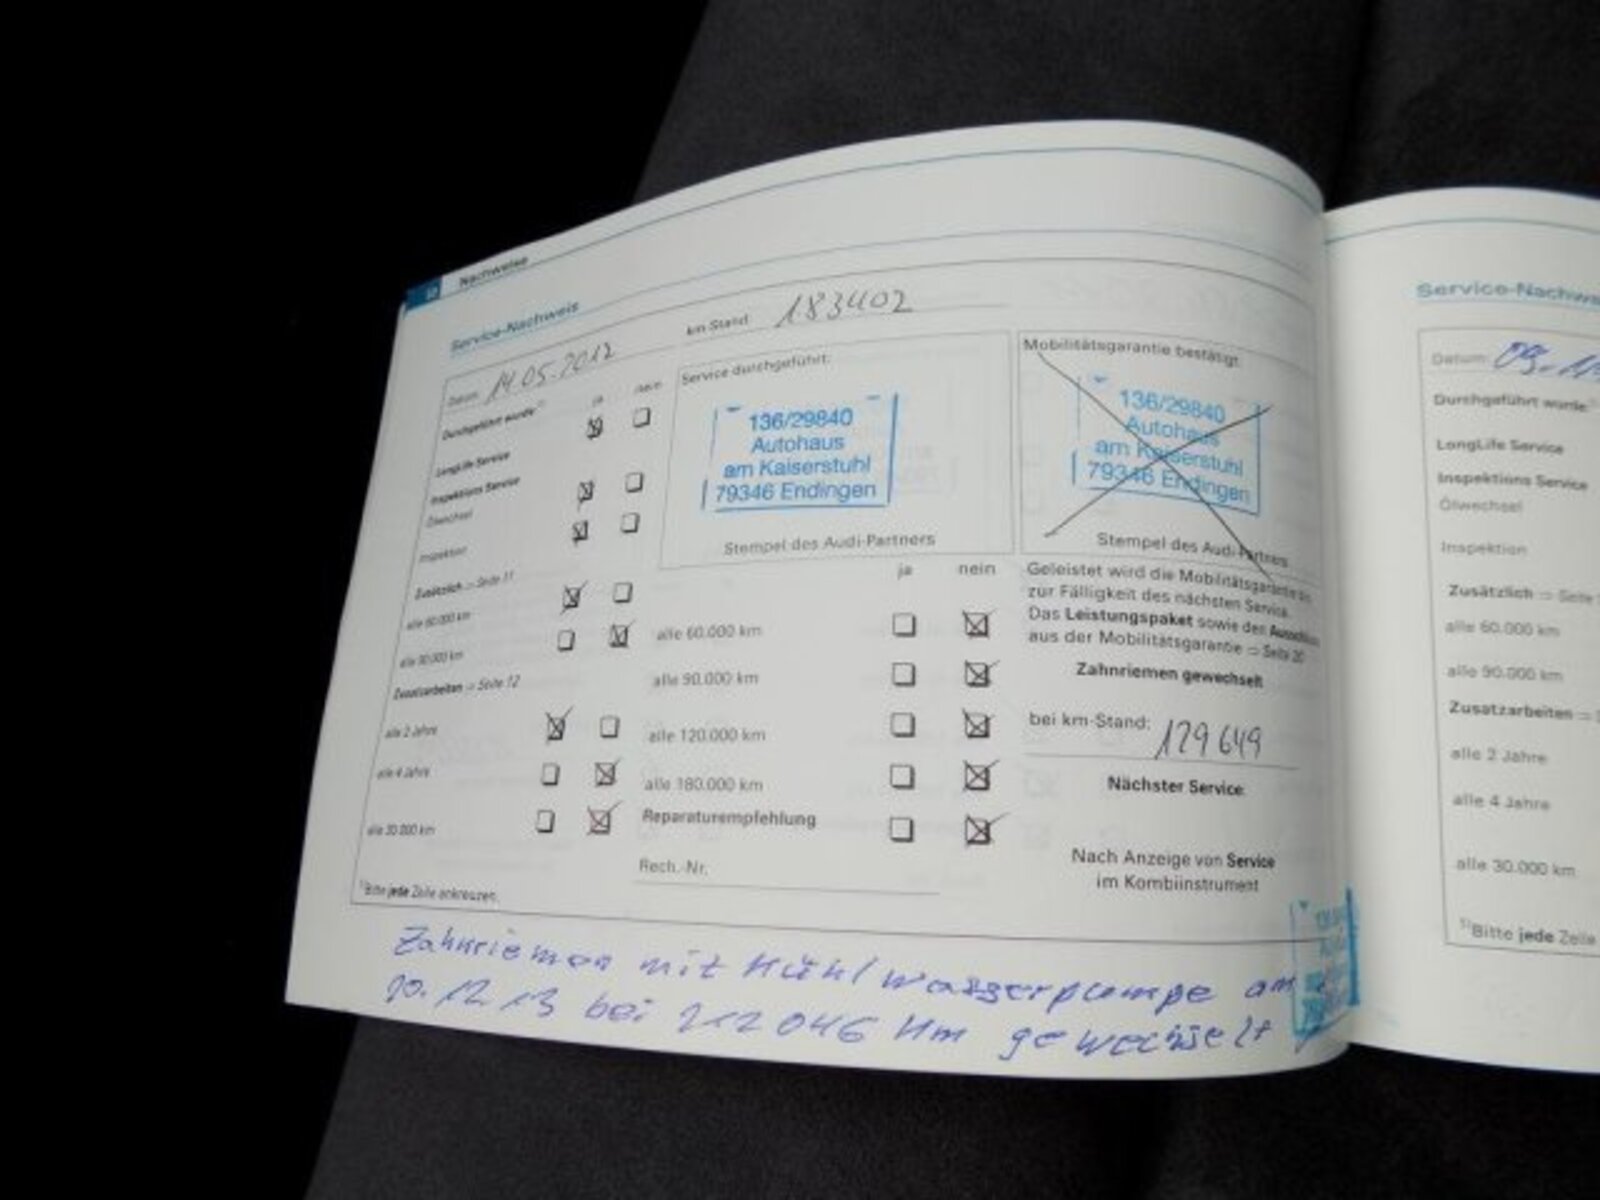 Nachweise
Service-Nachweis
Datum 14.05.2012
km-Stand 183402
Durchgeführt wurde:
ja nein
LongLife Service
Inspektions Service
Ölwechsel
Inspektion
Zusätzlich ⇒ Seite 11
alle 60.000 km
alle 90.000 km
Zusatzarbeiten ⇒ Seite 12
alle 2 Jahre
alle 4 Jahre
alle 30.000 km
Bitte jede Zeile ankreuzen.
Service durchgeführt:
136/29840
Autohaus
am Kaiserstuhl
79346 Endingen
Stempel des Audi-Partners
ja nein
alle 60.000 km
alle 90.000 km
alle 120.000 km
alle 180.000 km
Reparaturempfehlung
Rech.-Nr.
Mobilitätsgarantie bestätigt:
136/29840
Autohaus
am Kaiserstuhl
79346 Endingen
Stempel des Audi-Partners
Geleistet wird die Mobilitätsgarantie bis
zur Fälligkeit des nächsten Service.
Das Leistungspaket sowie den Ausschluss
aus der Mobilitätsgarantie ⇒ Seite 20
Zahnriemen gewechselt
bei km-Stand: 129649
Nächster Service
Nach Anzeige von Service
im Kombiinstrument
Zahnriemen mit Kühlwasserpumpe am
10.12.13 bei 212046 Km gewechselt
Service-Nachwe
Datum: 09.1
Durchgeführt wurde:
LongLife Service
Inspektions Service
Ölwechsel
Inspektion
Zusätzlich ⇒ Seite
alle 60.000 km
alle 90.000 km
Zusatzarbeiten ⇒
alle 2 Jahre
alle 4 Jahre
alle 30.000 km
Bitte jede Zeile